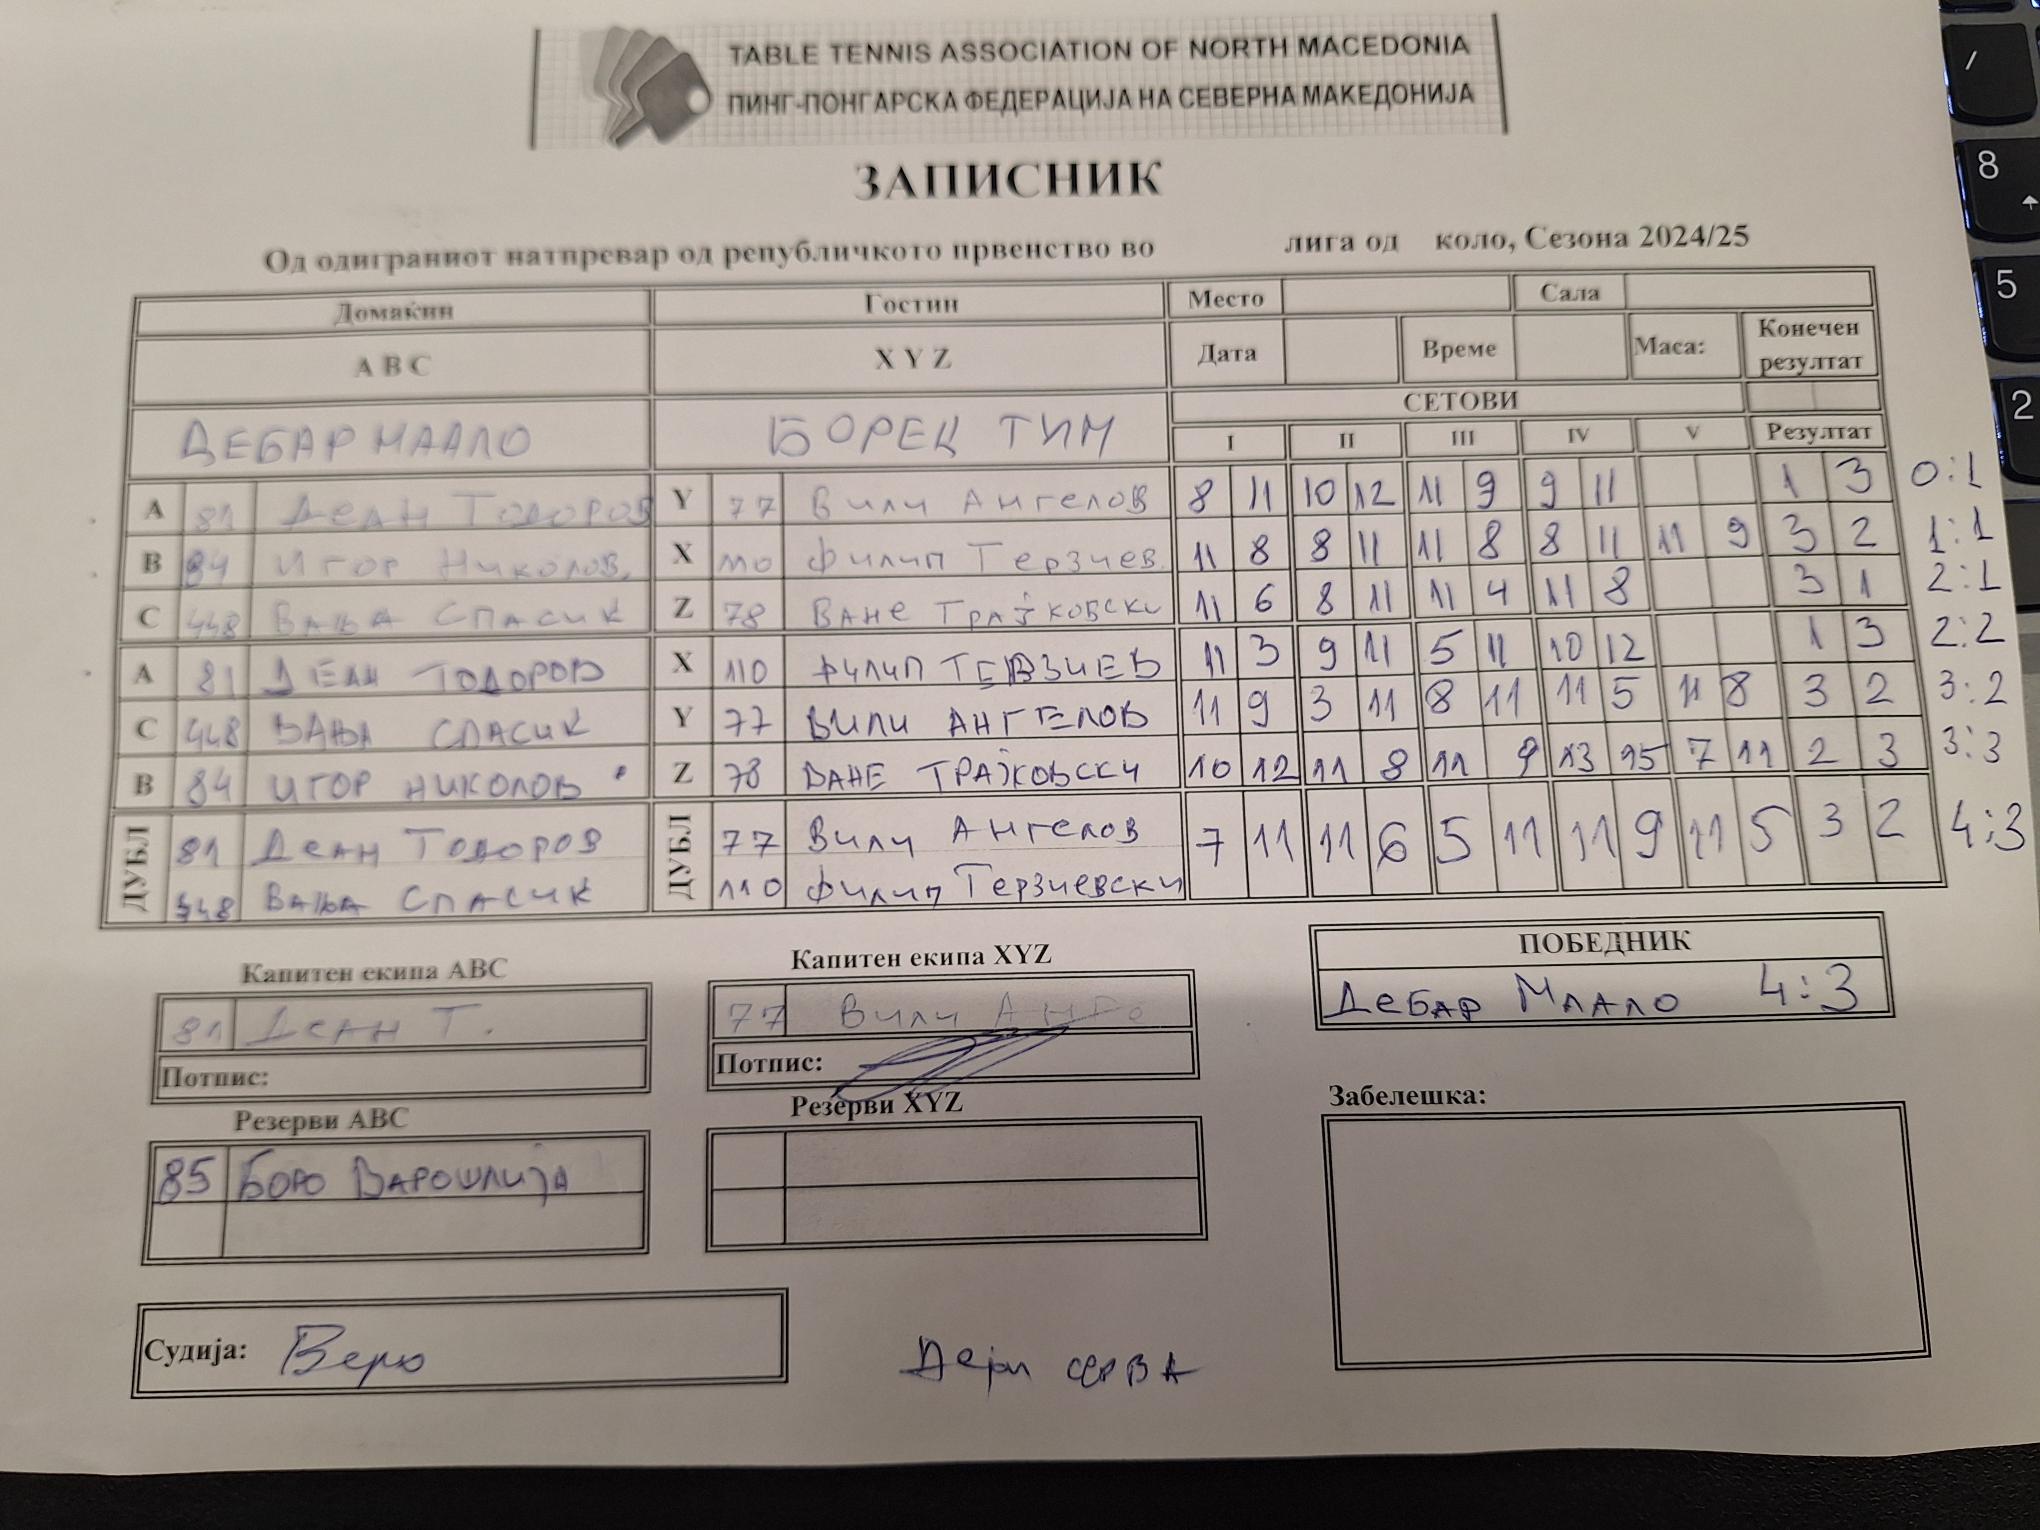 TABLE TENNIS ASSOCIATION OF NORTH MACEDONIA
ПИНГ-ПОНГАРСКА ФЕДЕРАЦИЈА НА СЕВЕРНА МАКЕДОНИЈА
ЗАПИСНИК
Од одиграниот натпревар од републичкото првенство во лига од коло, Сезона 2024/25
Домаќин Гостин Место Сала
A B C X Y Z Дата Време Маса: Конечен резултат
СЕТОВИ
ДЕБАР МААЛО БОРЕЦ ТИМ I II III IV V Резултат
A 81 Деан Тодоров Y 77 Вили Ангелов 8 11 10 12 11 9 9 11 1 3 0:1
B 84 Игор Николов X 110 Филип Терзиев 11 8 8 11 11 8 8 11 11 9 3 2 1:1
C 448 Вања Спасиќ Z 78 Ване Трајковски 11 6 8 11 11 4 11 8 3 1 2:1
A 81 ДЕАН ТОДОРОВ X 110 ФИЛИП ТЕРЗИЕВ 11 3 9 11 5 11 10 12 1 3 2:2
C 448 ВАЊА СПАСИЌ Y 77 ВИЛИ АНГЕЛОВ 11 9 3 11 8 11 11 5 11 8 3 2 3:2
B 84 ИГОР НИКОЛОВ Z 78 ВАНЕ ТРАЈКОВСКИ 10 12 11 8 11 9 13 15 7 11 2 3 3:3
ДУБЛ 81 Деан Тодоров ДУБЛ 77 Вили Ангелов 7 11 11 6 5 11 11 9 11 5 3 2 4:3
448 Вања Спасиќ 110 Филип Терзиевски
Капитен екипа ABC Капитен екипа XYZ ПОБЕДНИК
81 Деан Т. 77 Вили Анге Дебар Маало 4:3
Потпис: Потпис:
Резерви ABC Резерви XYZ Забелешка:
85 Боро Варошлија
Судија: Веро
серва